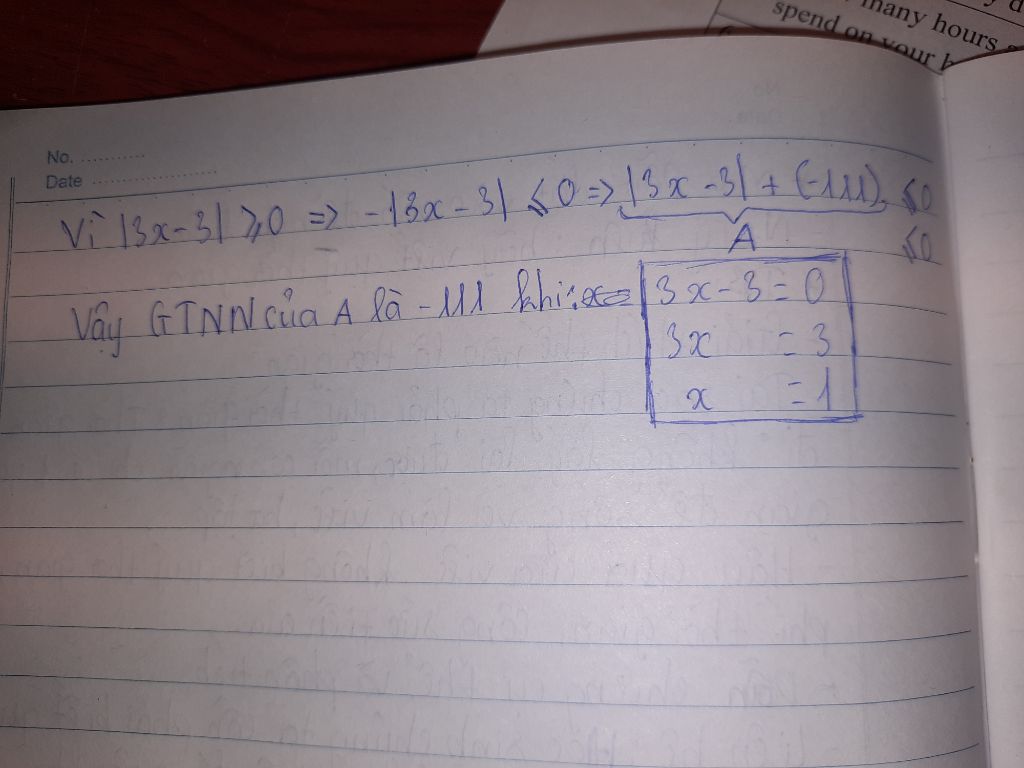 many hours
spend on your h
No. ............
Date ......................
Vì |3x-3| ⩾0 => -|3x-3| ⩽0 => |3x-3| + (-111) ⩽0
A ⩽0
Vậy GTNN của A là -111 khi: x= 3x-3=0
3x = 3
x = 1